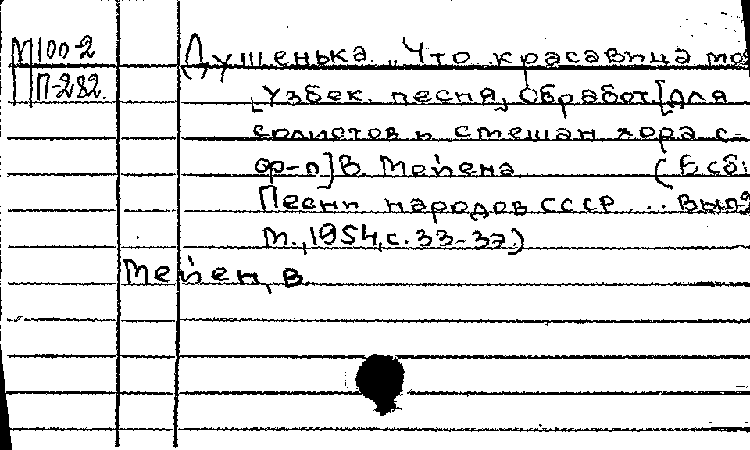 М 100-2
П-282
Душенька. „Что красавица моя
Узбек. песня, Обработ. [для
солистов и смешан хора с-
ф-п] В. Мейена (В сб:
Песни народов СССР ... Вып.2
М., 1954, с. 33-37)
Мейен, В.